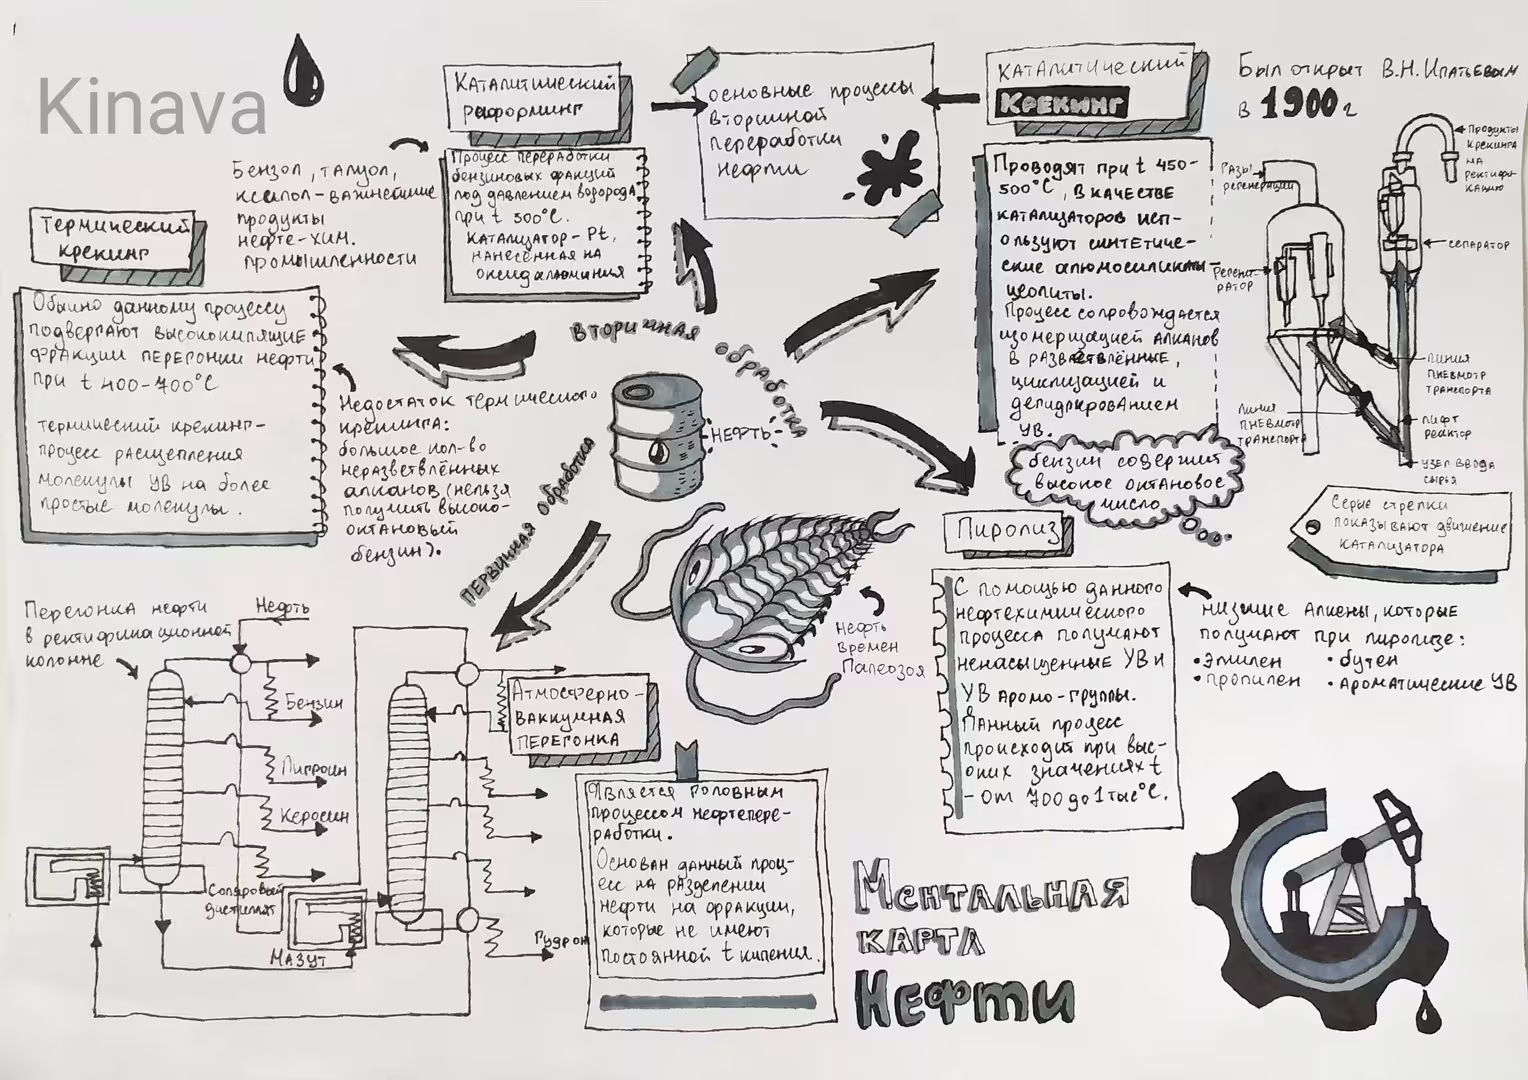 Kinava
Каталитический
риформинг
Процесс переработки
бензиновых фракций
под давлением водорода
при t 500°С.
Катализатор - Pt,
нанесённая на
оксид алюминия
Бензол, талуол,
ксилол - важнейшие
продукты
нефте-хим.
промышленности
основные процессы
вторичной
переработки
нефти
каталитический
Крекинг
Был открыт В.Н. Ипатьевым
в 1900 г
Проводят при t 450-
500°С, в качестве
катализаторов исп-
ользуют синтетиче-
ские алюмосиликаты-
цеолиты.
Процесс сопровождается
изомеризацией алканов
в разветвлённые,
циклизацией и
дегидрированием
УВ.
бензин содержит
высокое октановое
число
Продукты
крекинга
на
ректифи-
кацию
сепаратор
линия
пневмотр
транспорта
лифт
реактор
узел ввода
сырья
линия
пневмотр
транспорта
Серые стрелки
показывают движение
катализатора
Термический
крекинг
Обычно данному процессу
подвергают высококипящие
фракции перегонки нефти
при t 400-700°С
термический крекинг-
процесс расщепления
молекулы УВ на более
простые молекулы.
Недостаток термического
крекинга:
большое кол-во
неразветвлённых
алканов (нельзя
получить высоко-
октановый
бензин).
Вторичная
обработка
нефть
Первичная обработка
Нефть
времен
Палеозоя
Пиролиз
С помощью данного
нефтехимического
процесса получают
ненасыщенные УВ и
УВ аромо-группы.
Данный процесс
происходит при выс-
оких значениях t
- от 700 до 1 тыс°С.
низшие Алкены, которые
получают при пиролизе:
•этилен •бутен
•пропилен •ароматические УВ
Перегонка нефти
в ректификационной
колонне
Нефть
Бензин
Лигроин
Керосин
Соляровый
дистиллят
Мазут
Гудрон
Атмосферно-
вакуумная
перегонка
Является головным
процессом нефтепере-
работки.
Основан данный проц-
есс на разделении
нефти на фракции,
которые не имеют
постоянной t кипения.
Ментальная
карта
Нефти